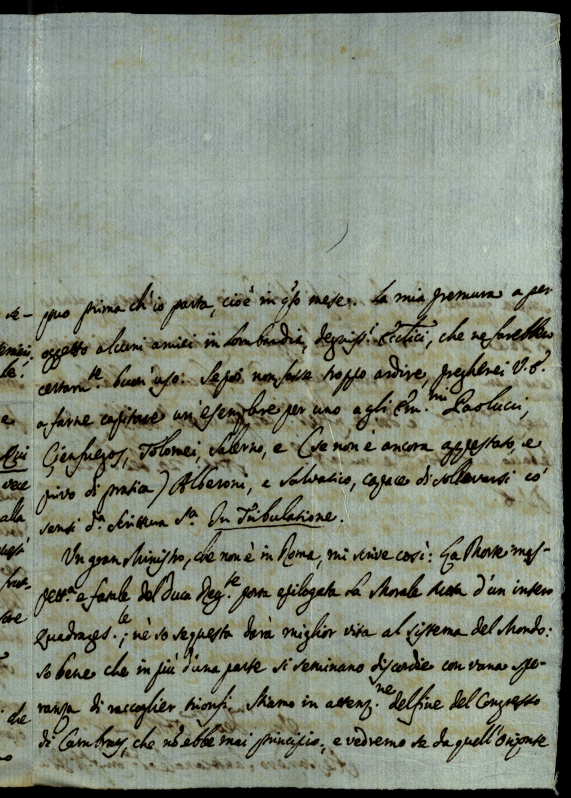 puo prima ch'io parta, cioè in q.sto mese. La mia premura a per
oggetto alcuni amici in Lombardia, degniss.i Eccl.ci, che ne farebbero
certam.te buon'uso. Se poi non fosse troppo ardire, pregherei V.S.
a farne capitare un'esemplare per uno agli Em.mi Paolucci,
Cienfuegos, Tolomei, Salerno, e (se non è ancora appestato, e
privo di pratica) Alberoni, e Salvatico, capace di sollevarsi co'
sensi d.a Scrittura S.a In Tribulatione.
Un gran Ministro, che non è in Roma, mi scrive così: La Morte
e fatale del Duca Reg.te porta epilogata la Morale tutta d'un intero
Quadrages.le; nè so se questa darà miglior vita al sistema del Mondo:
so bene che in più d'una parte si seminano discordie con vana spe-
ranza di raccoglier trionfi. Stiamo in attenz.ne del fine del Congresso
di Cambray, che nō ebbe mai principio, e vedremo se da quell'Orizonte